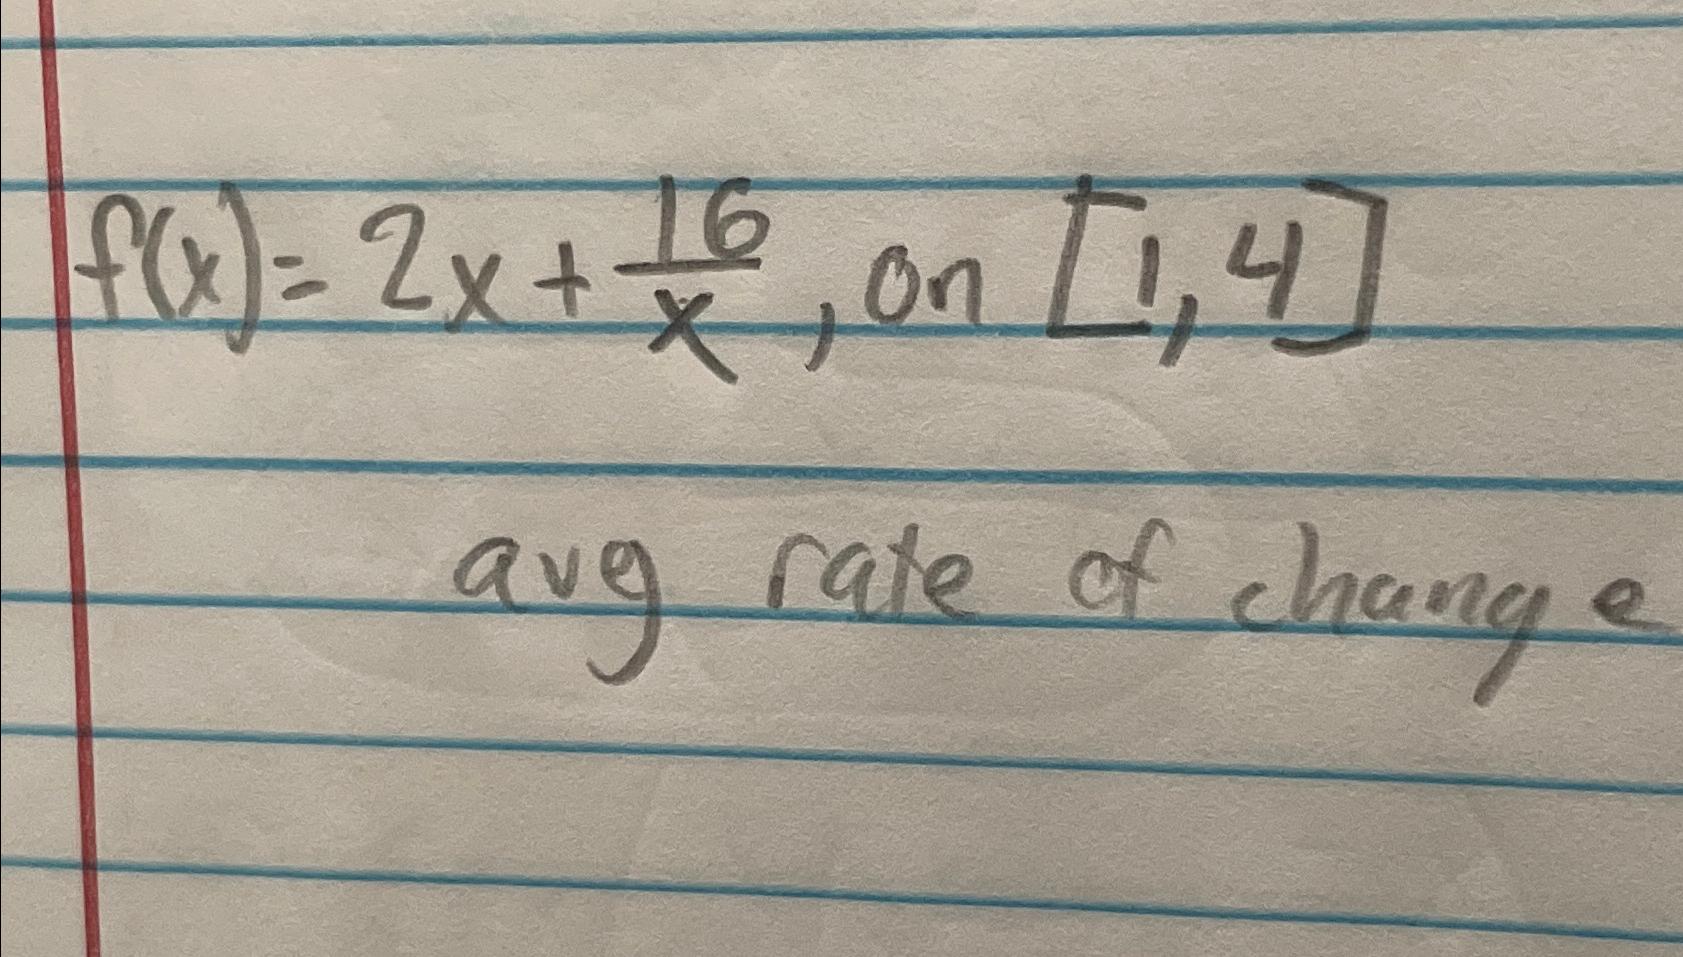 f(x) = 2x + 16/x, on [1, 4]
avg rate of change